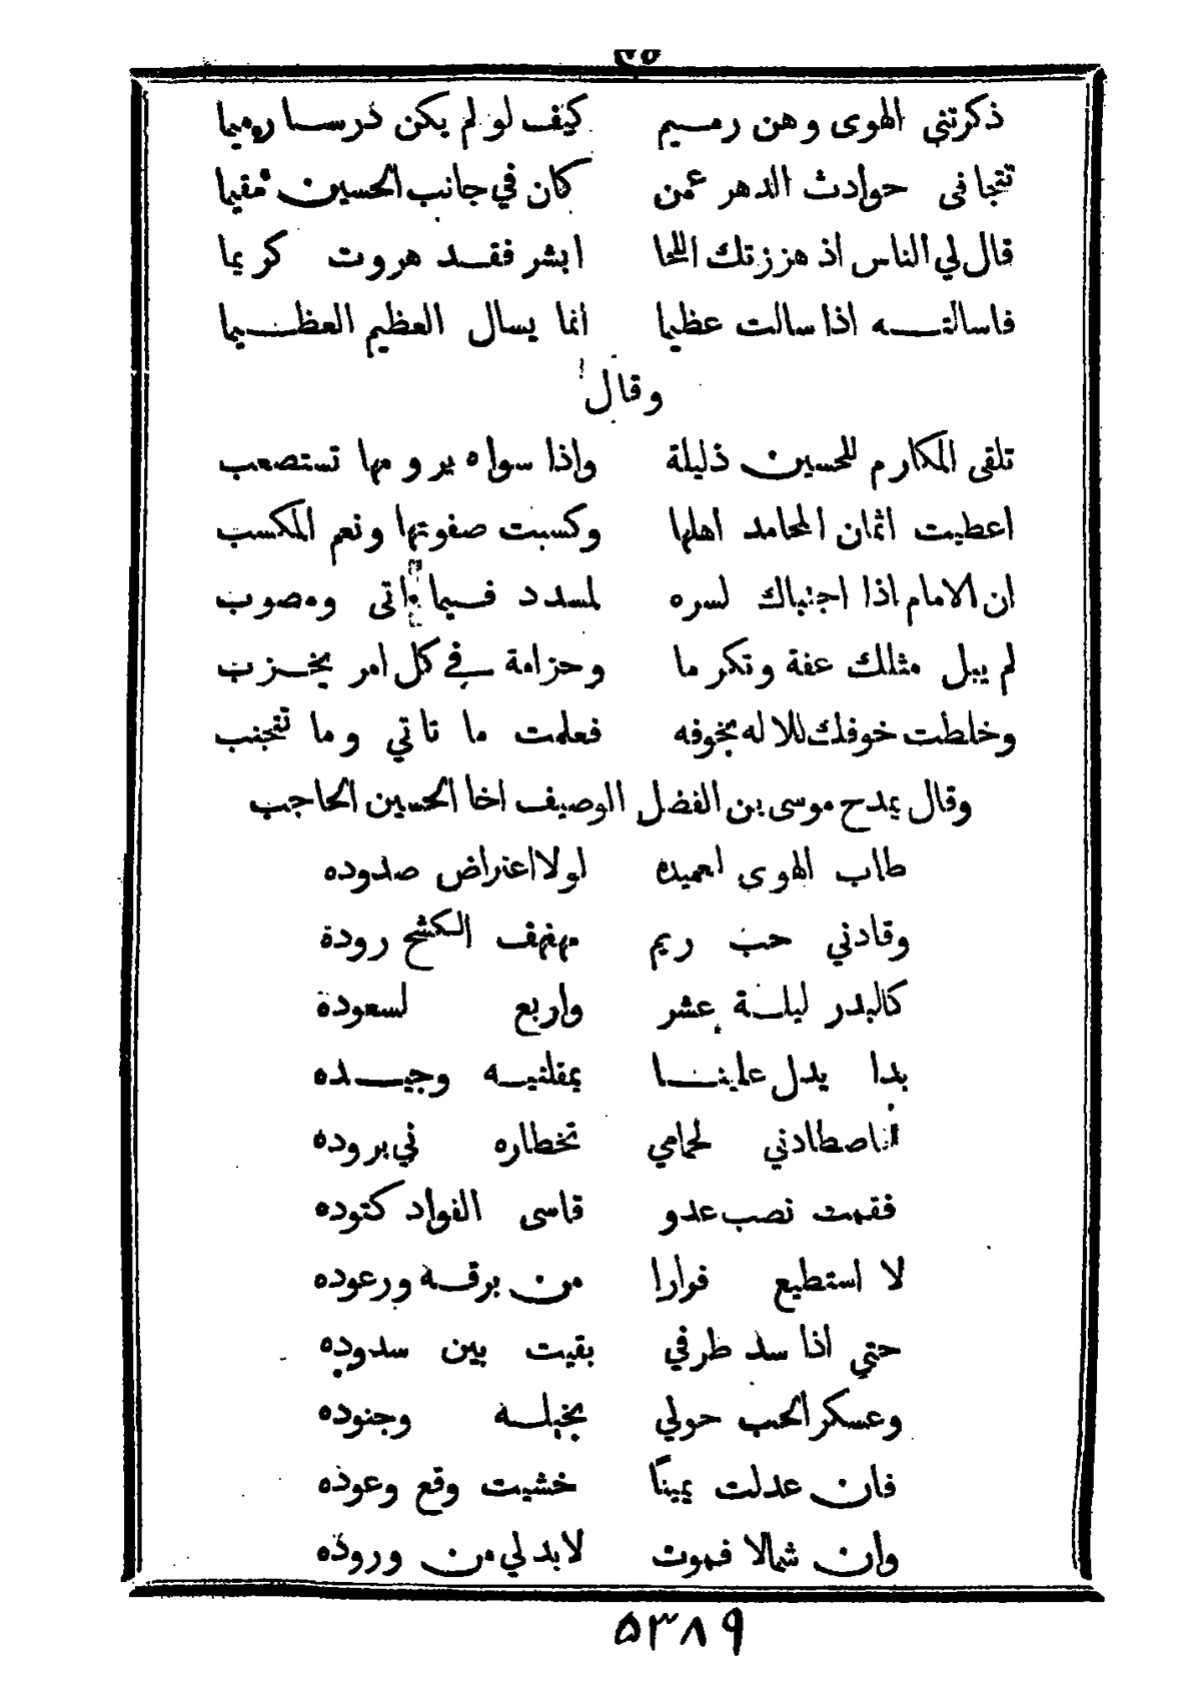 ٧٥
ذكرتني الهوى وهن رميم كيف لو لم يكن درسا رميما
تتجافى حوادث الدهر عمن كان في جانب الحسين مقيما
قال لي الناس اذ هززتك للحا ابشر فقد هزوت كريما
فاسالنه اذا سالت عظيما انما يسال العظيم العظيما
وقال
تلقى المكارم للحسين ذليلة واذا سواه يرومها تستصعب
اعطيت اثمان المحامد اهلها وكسبت صفوتها ونعم المكسب
ان الامام اذا اجتباك لسره لمسدد فيما اتى ومصوب
لم يبل مثلك عفة وتكرما وحزامة في كل امر يحزب
وخلطت خوفك للاله بخوفه فعلمت ما تاتي وما تتجنب
وقال يمدح موسى بن الفضل الوصيف اخا الحسين الحاجب
طاب الهوى لعميده لولا اعتراض صدوده
وقادني حب ريم مهفهف الكشح رودة
كالبدر ليلة عشر واربع لسعودة
بدا يدل علينا بمقلتيه وجيده
اناصطادني لحمامي تخطاره في بروده
فقمت نصب عدو قاسى الفواد كنوده
لا استطيع فرارا من برقه ورعوده
حتي اذا سد طرفي بقيت بين سدوده
وعسكر الحب حولي بخيله وجنوده
فان عدلت يمينا خشيت وقع وعوده
وان شمالا فموت لابد لي من وروده
٥٣٨٩